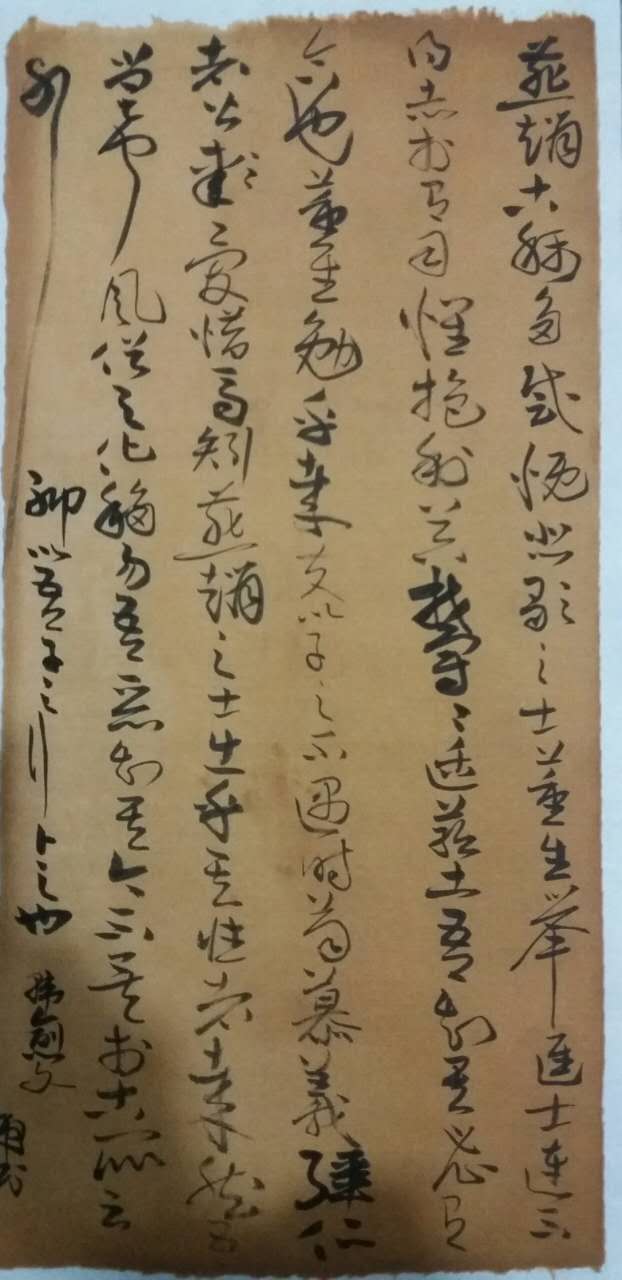 燕趙古稱多感慨悲歌之士董生舉進士連不
得志於有司懷抱利器鬱鬱適茲土吾知其必有
合也董生勉乎哉夫以子之不遇時苟慕義彊仁
者皆愛惜焉矧燕趙之士出乎其性者哉然吾
嘗聞風俗與化移易吾惡知其今不異於古所云
耶聊以吾子之行卜之也韓愈文